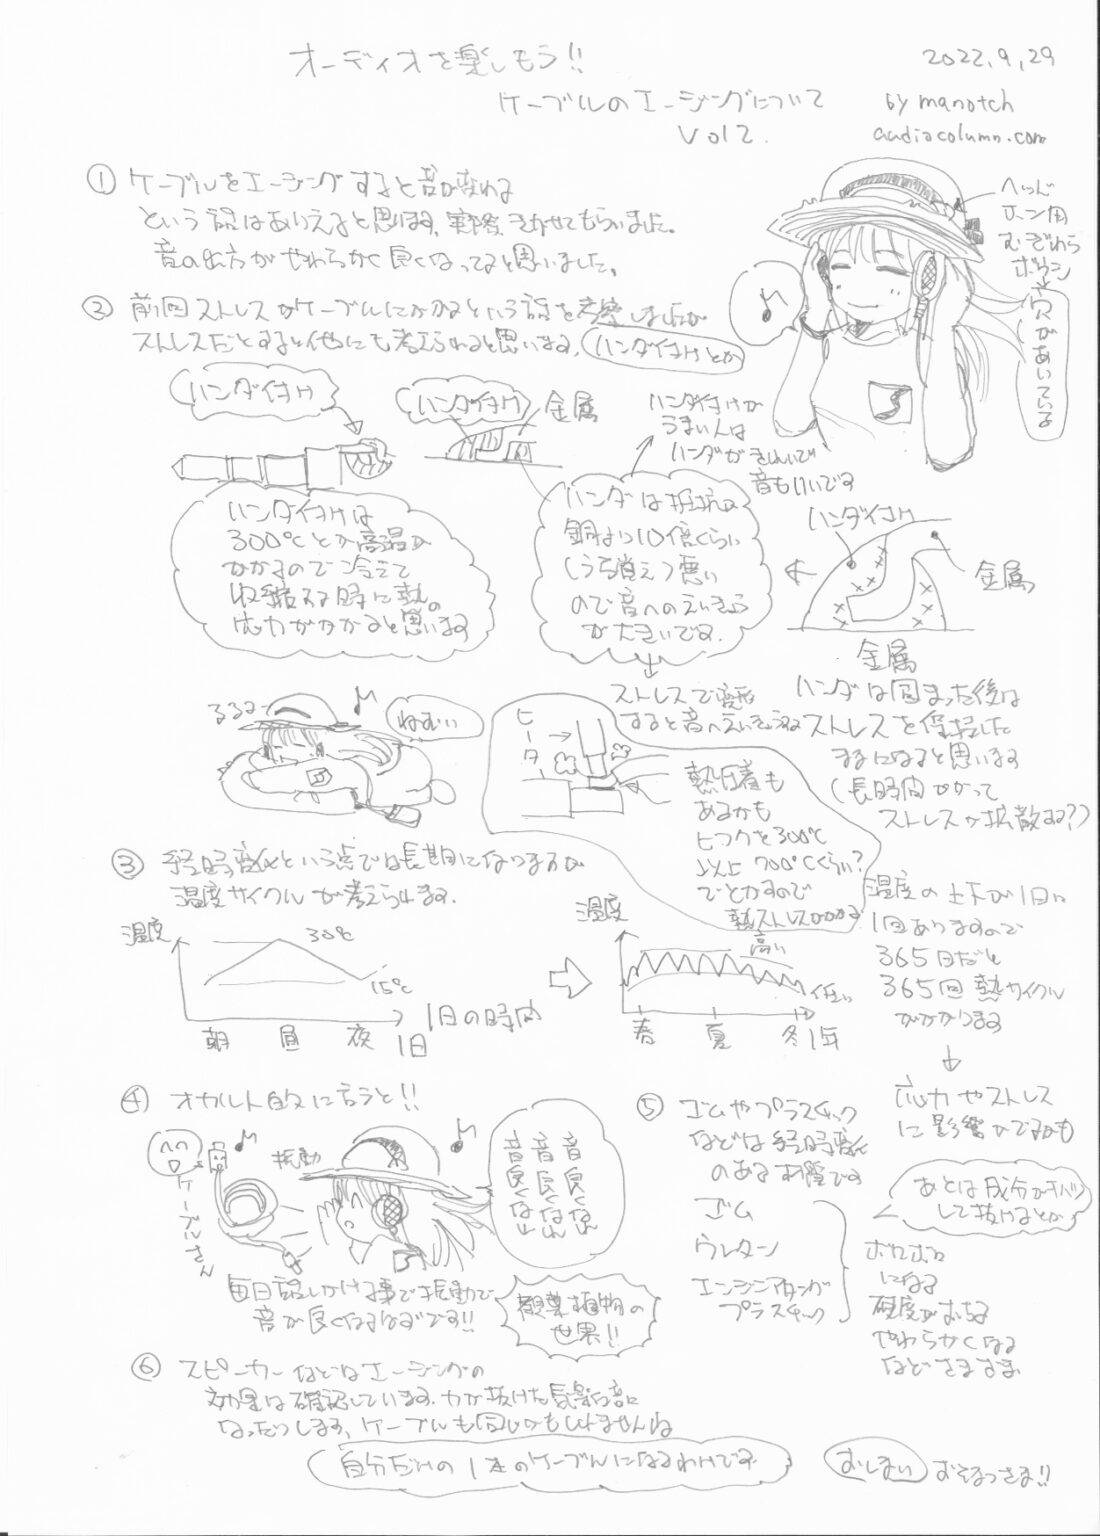 オーディオを楽しもう!!
2022.9.29
ケーブルのエージングについて
Vol2.
by manotch
audiocolumn.com
① ケーブルをエージングすると音が変わる
という話はありえると思います。実際、きかせてもらいました。
音の出方がやわらかく良くなってると思いました。
ヘッド
ホン用
むぎわら
ボウシ
穴があいている
② 前回ストレスがケーブルにかかるという話を考察しましたが
ストレスだとすると他にも考えられると思います。ハンダ付けとか
ハンダ付け
ハンダ付け
金属
ハンダ付けが
うまい人は
ハンダがきれいで
音もいいです
ハンダ付けは
300℃とか高温が
かかるので冷えて
収縮する時に熱
応力がかかると思います
ハンダは抵抗が
銅より10倍くらい
(うろ覚え)悪い
ので音へのえいきょう
が大きいです.
ハンダ付け
金属
金属
ストレスで変形
すると音へえいきょうする
ハンダは固まった後は
ストレスを保持した
ままになると思います
(長時間かかって
ストレスが拡散する?)
るるる
ねむい
ヒーター
熱圧着も
あるかも
ヒフクを300℃
以上 700℃くらい?
でとかすので
熱ストレスがかかる
③ 経時変化という点では長期になりますが
温度サイクルが考えられます.
温度
30℃
15℃
朝 昼 夜 1日
1日の時間
温度
高い
低い
春 夏 冬 1年
温度の上下が1日に
1回ありますので
365日だと
365回熱サイクル
がかかります
応力やストレス
に影響がでるかも
④ オカルト的に言うと!!
振動
ケーブルさん
音良くなれ
音良くなれ
音良くなれ
毎日話しかける事で振動で
音が良くなるはずです!!
観葉植物の
世界!!
⑤ ゴムやプラスチック
などは経時変化
のある材質です
ゴム
ウレタン
エンジニアリング
プラスチック
あとは成分がキハツ
して抜けるとか
ボロボロ
になる
硬度がおちる
やわらかくなる
などさまざま
⑥ スピーカーなどはエージングの
効果は確認しています。力が抜けた気楽な音に
なったりします、ケーブルも同じかもしれませんね
自分だけの1本のケーブルになるわけです
おしまい
おそまつさま!!